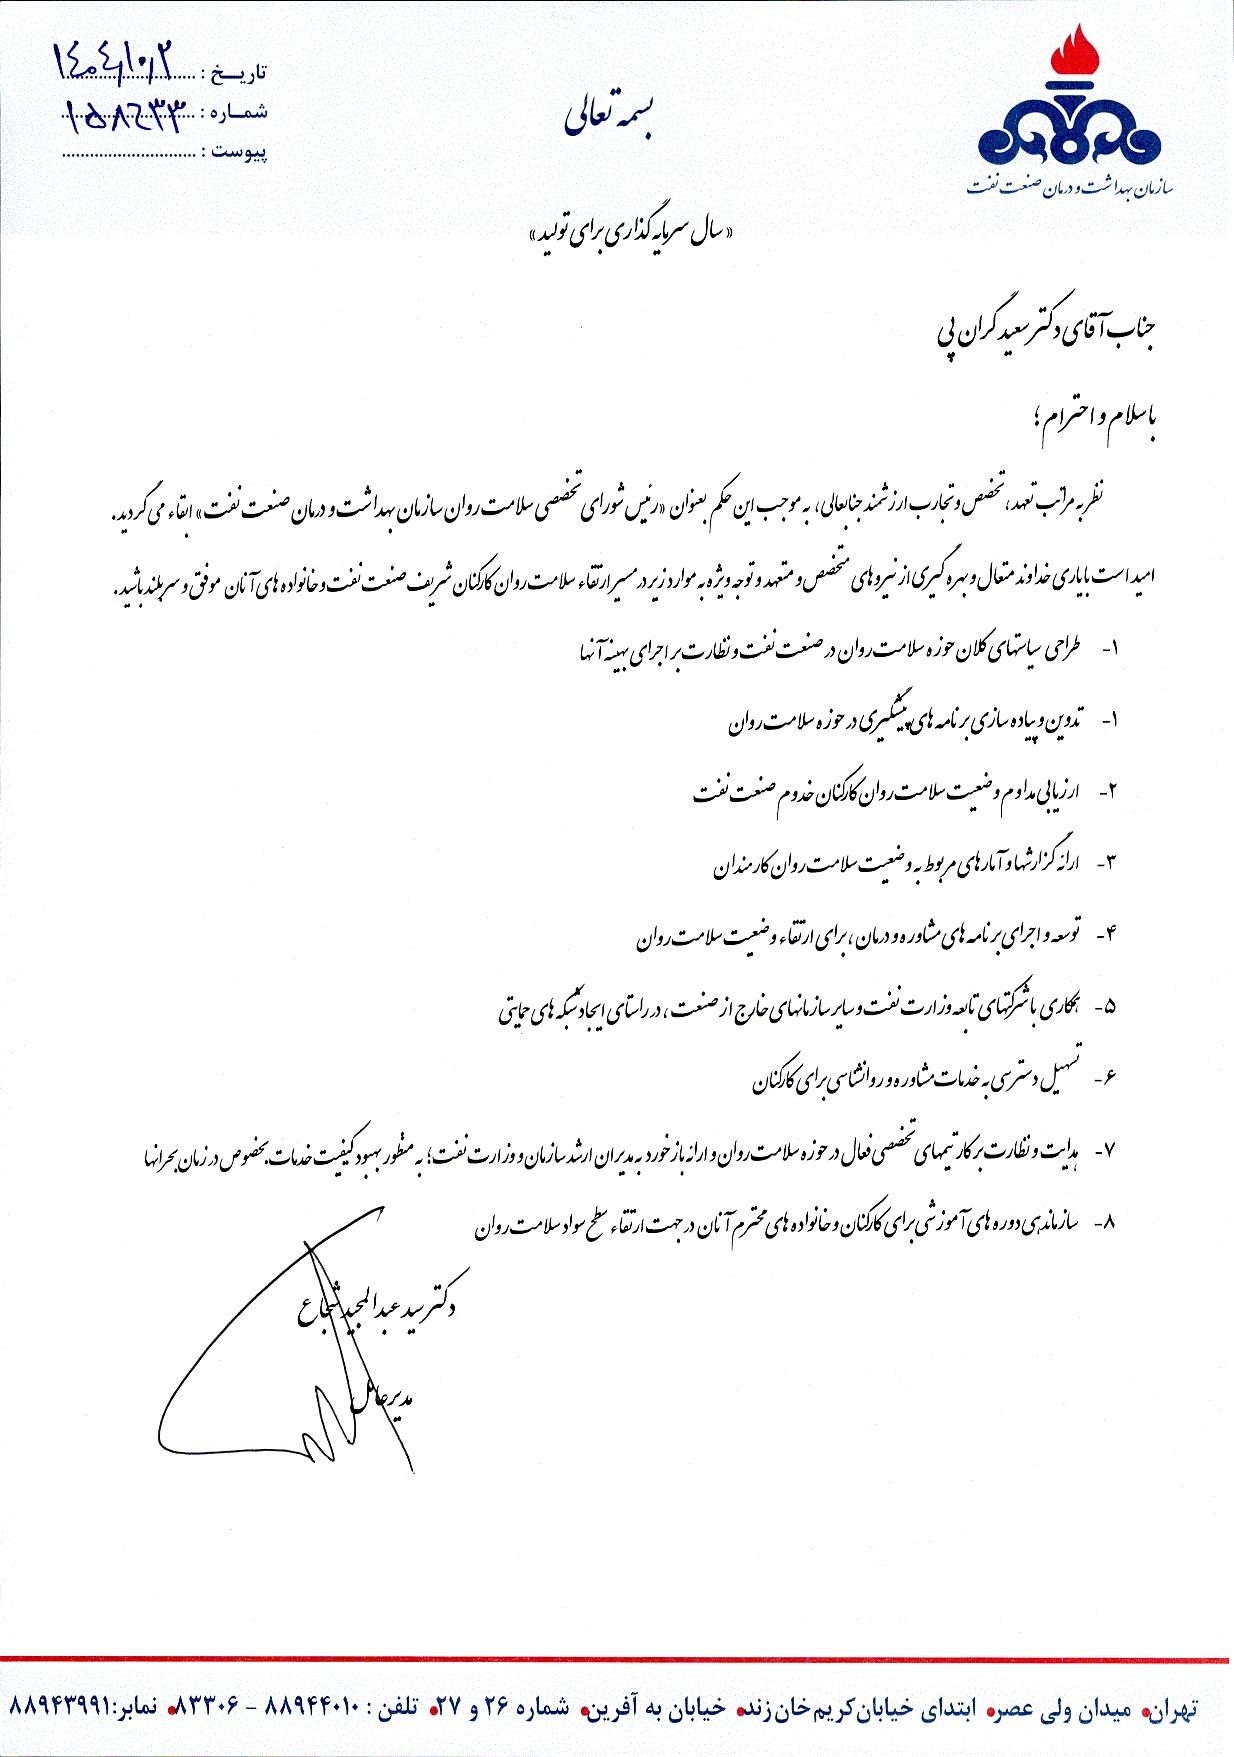 تاریخ : ۱۴۰۴/۱۰/۲
شماره :
پیوست :
بسمه تعالی
سازمان بهداشت و درمان صنعت نفت
«سال سرمایه گذاری برای تولید»
جناب آقای دکتر سعید گران پی
با سلام و احترام ؛
نظر به مراتب تعهد، تخصص و تجارب ارزشمند جنابعالی، به موجب این حکم بعنوان «رئیس شورای تخصصی سلامت روان سازمان بهداشت و درمان صنعت نفت» ابقاء می گردید.
امید است با یاری خداوند متعال و بهره گیری از نیروهای متخصص و متعهد و توجه ویژه به موارد زیر در مسیر ارتقاء سلامت روان کارکنان شریف صنعت نفت و خانواده های آنان موفق و سربلند باشید.
۱- طراحی سیاستهای کلان حوزه سلامت روان در صنعت نفت و نظارت بر اجرای بهینه آنها
۱- تدوین و پیاده سازی برنامه های پیشگیری در حوزه سلامت روان
۲- ارزیابی مداوم وضعیت سلامت روان کارکنان خدوم صنعت نفت
۳- ارائه گزارشها و آمارهای مربوط به وضعیت سلامت روان کارمندان
۴- توسعه و اجرای برنامه های مشاوره و درمان ، برای ارتقاء وضعیت سلامت روان
۵- همکاری با شرکتهای تابعه وزارت نفت و سایر سازمانهای خارج از صنعت ، در راستای ایجاد شبکه های حمایتی
۶- تسهیل دسترسی به خدمات مشاوره و روانشناسی برای کارکنان
۷- هدایت و نظارت بر کار تیمهای تخصصی فعال در حوزه سلامت روان و ارائه بازخورد به مدیران ارشد سازمان و وزارت نفت؛ به منظور بهبود کیفیت خدمات بخصوص در زمان بحرانها
۸- سازماندهی دوره های آموزشی برای کارکنان و خانواده های محترم آنان در جهت ارتقاء سطح سواد سلامت روان
دکتر سید عبدالمجید شجاع
مدیرعامل
تهران • میدان ولی عصر • ابتدای خیابان کریم خان زند • خیابان به آفرین • شماره ۲۶ و ۲۷ • تلفن : ۸۸۹۴۴۰۱۰ - ۸۳۳۰۶ • نمابر: ۸۸۹۴۳۹۹۱